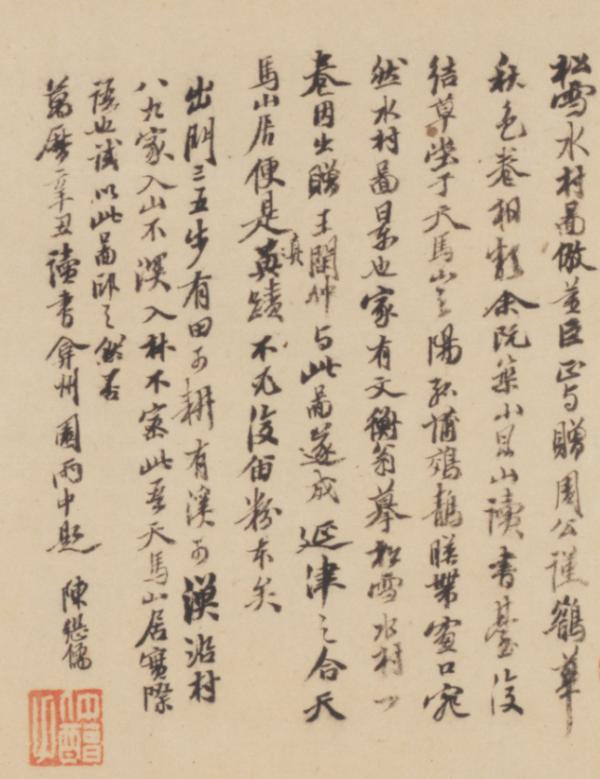 松雪水村圖倣董巨正与贈周公謹鵲華
秋色卷相類余既築小昆山讀書臺後
結草堂于天馬山之陽菰蒲鵁鶄映帶窗口宛
然水村圖景也家有文衡翁摹松雪水村一
卷因出贈王閑仲与此圖遂成延津之合天
馬山居便是真蹟不必復留粉本矣
出門三五步有田可耕有溪可漁沿村
八九家入山不深入林不密此吾天馬山居實際
語也試以此圖印之然否
萬曆辛丑讀書弇州園雨中題 陳繼儒